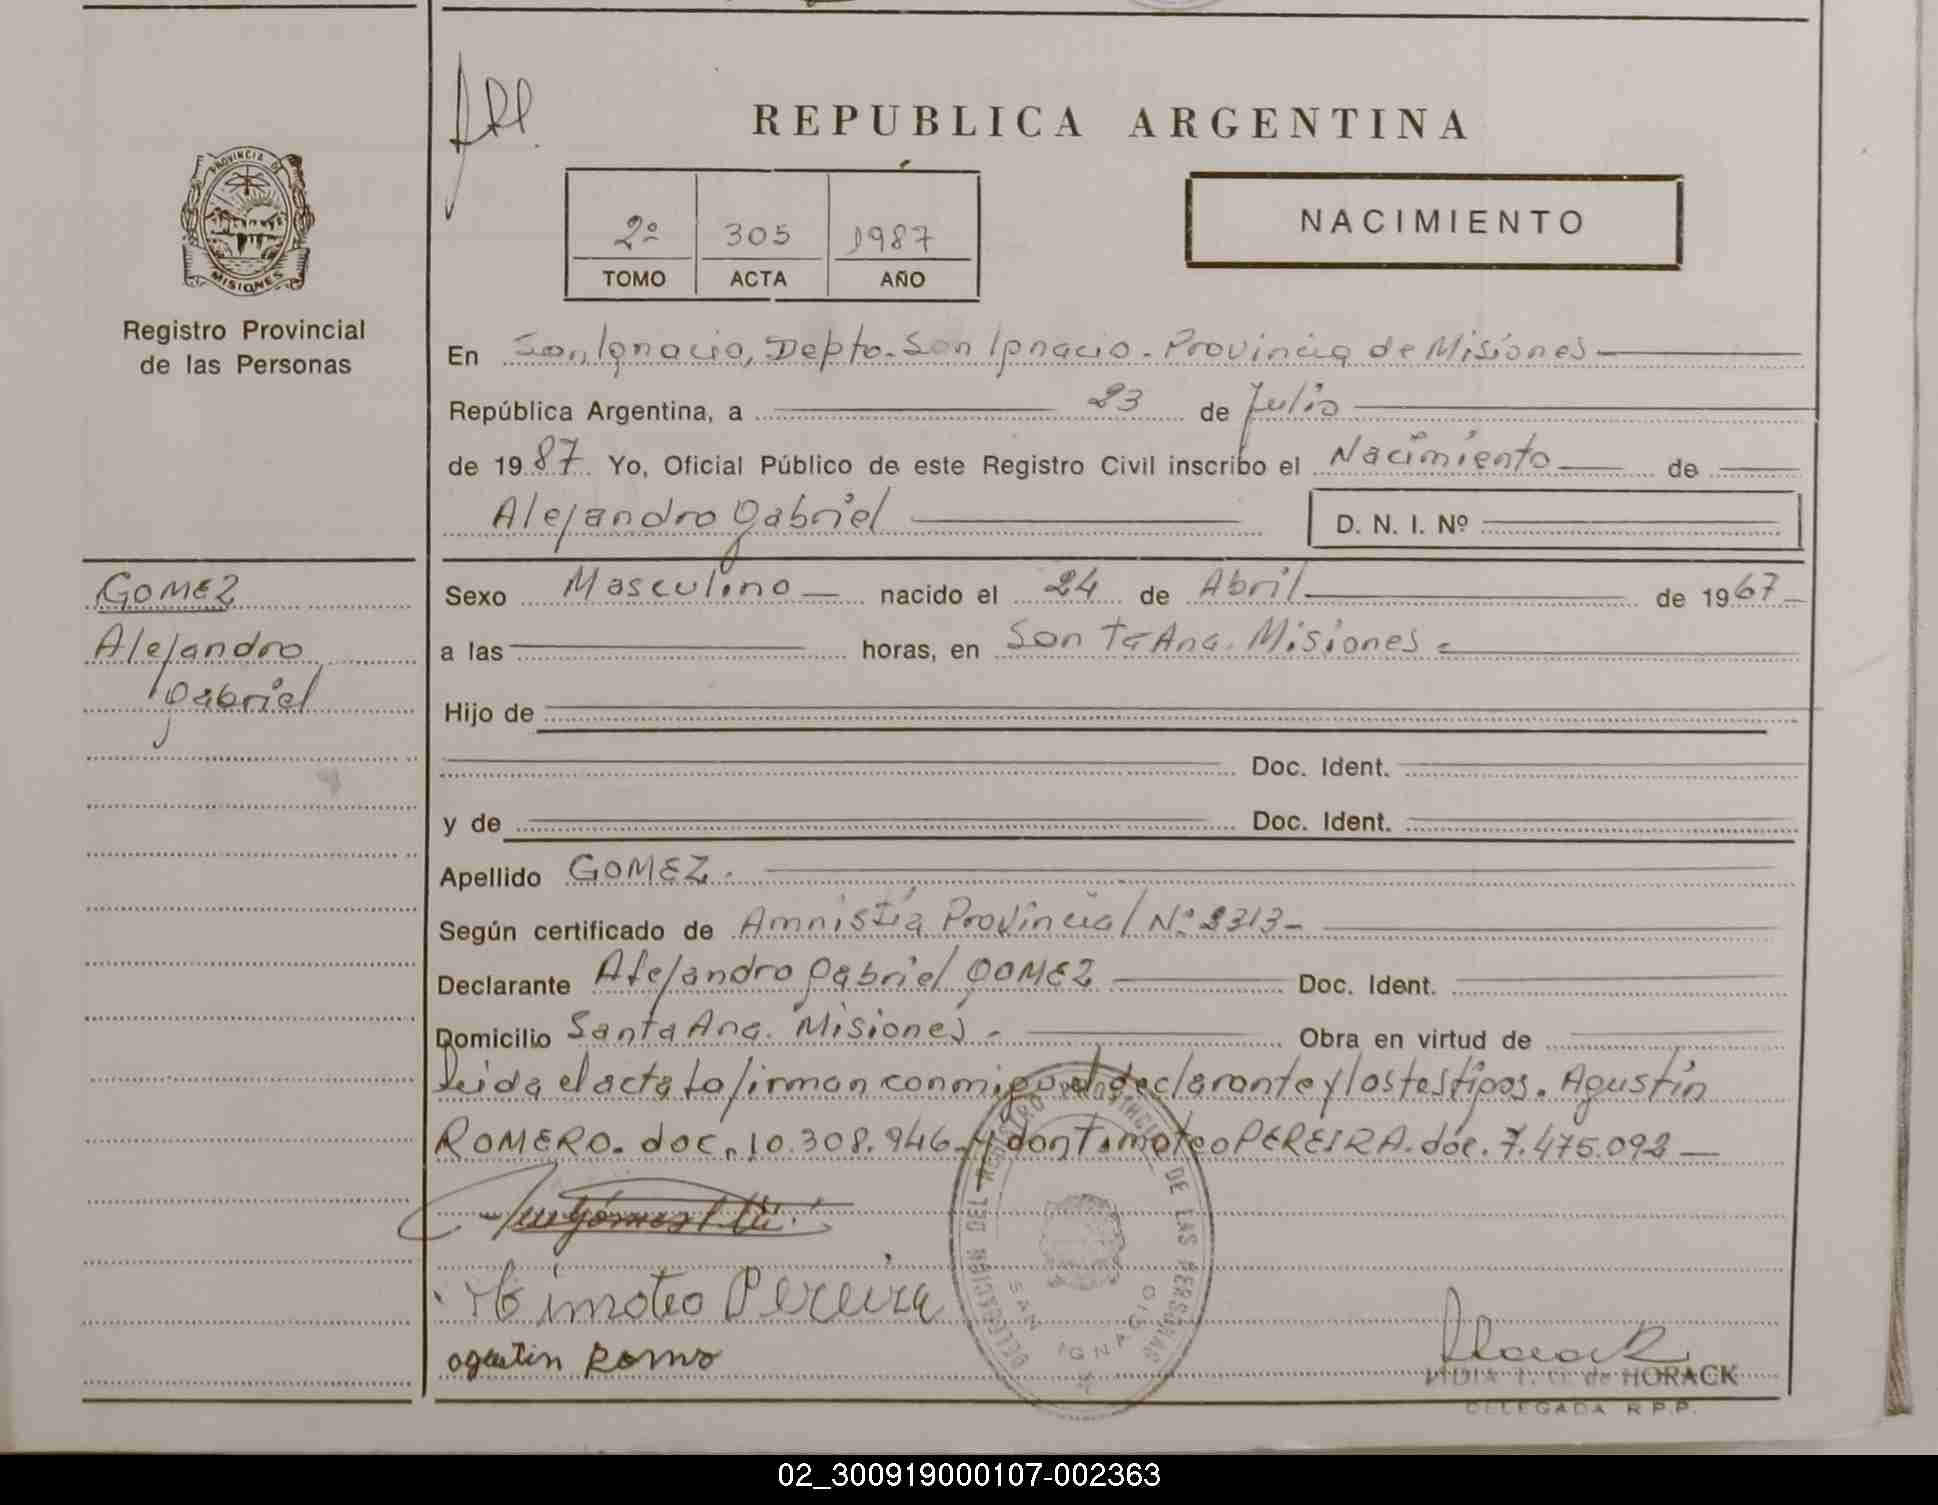 REPUBLICA ARGENTINA
PROVINCIA DE
MISIONES
Registro Provincial
de las Personas
2º 305 1987
TOMO ACTA AÑO
NACIMIENTO
En San Ignacio, Depto. San Ignacio. Provincia de Misiones
República Argentina, a 23 de Julio
de 1987 Yo, Oficial Público de este Registro Civil inscribo el Nacimiento de
Alejandro Gabriel
D. N. I. Nº
GOMEZ
Alejandro
Gabriel
Sexo Masculino nacido el 24 de Abril de 1967
a las horas, en Santa Ana. Misiones
Hijo de
Doc. Ident.
y de Doc. Ident.
Apellido GOMEZ.
Según certificado de Amnistía Provincial Nº 2313
Declarante Alejandro Gabriel GOMEZ Doc. Ident.
Domicilio Santa Ana. Misiones. Obra en virtud de
Leida el acta la firman conmigo el declarante y los testigos. Agustín
ROMERO. doc. 10.308.946. y don Timoteo PEREIRA. doc. 7.475.092
Timoteo Pereira
agustin Romo
DELEGACION DEL REGISTRO PROVINCIAL DE LAS PERSONAS
SAN IGNACIO
de HORACK
DELEGADA R.P.P.
02_300919000107-002363